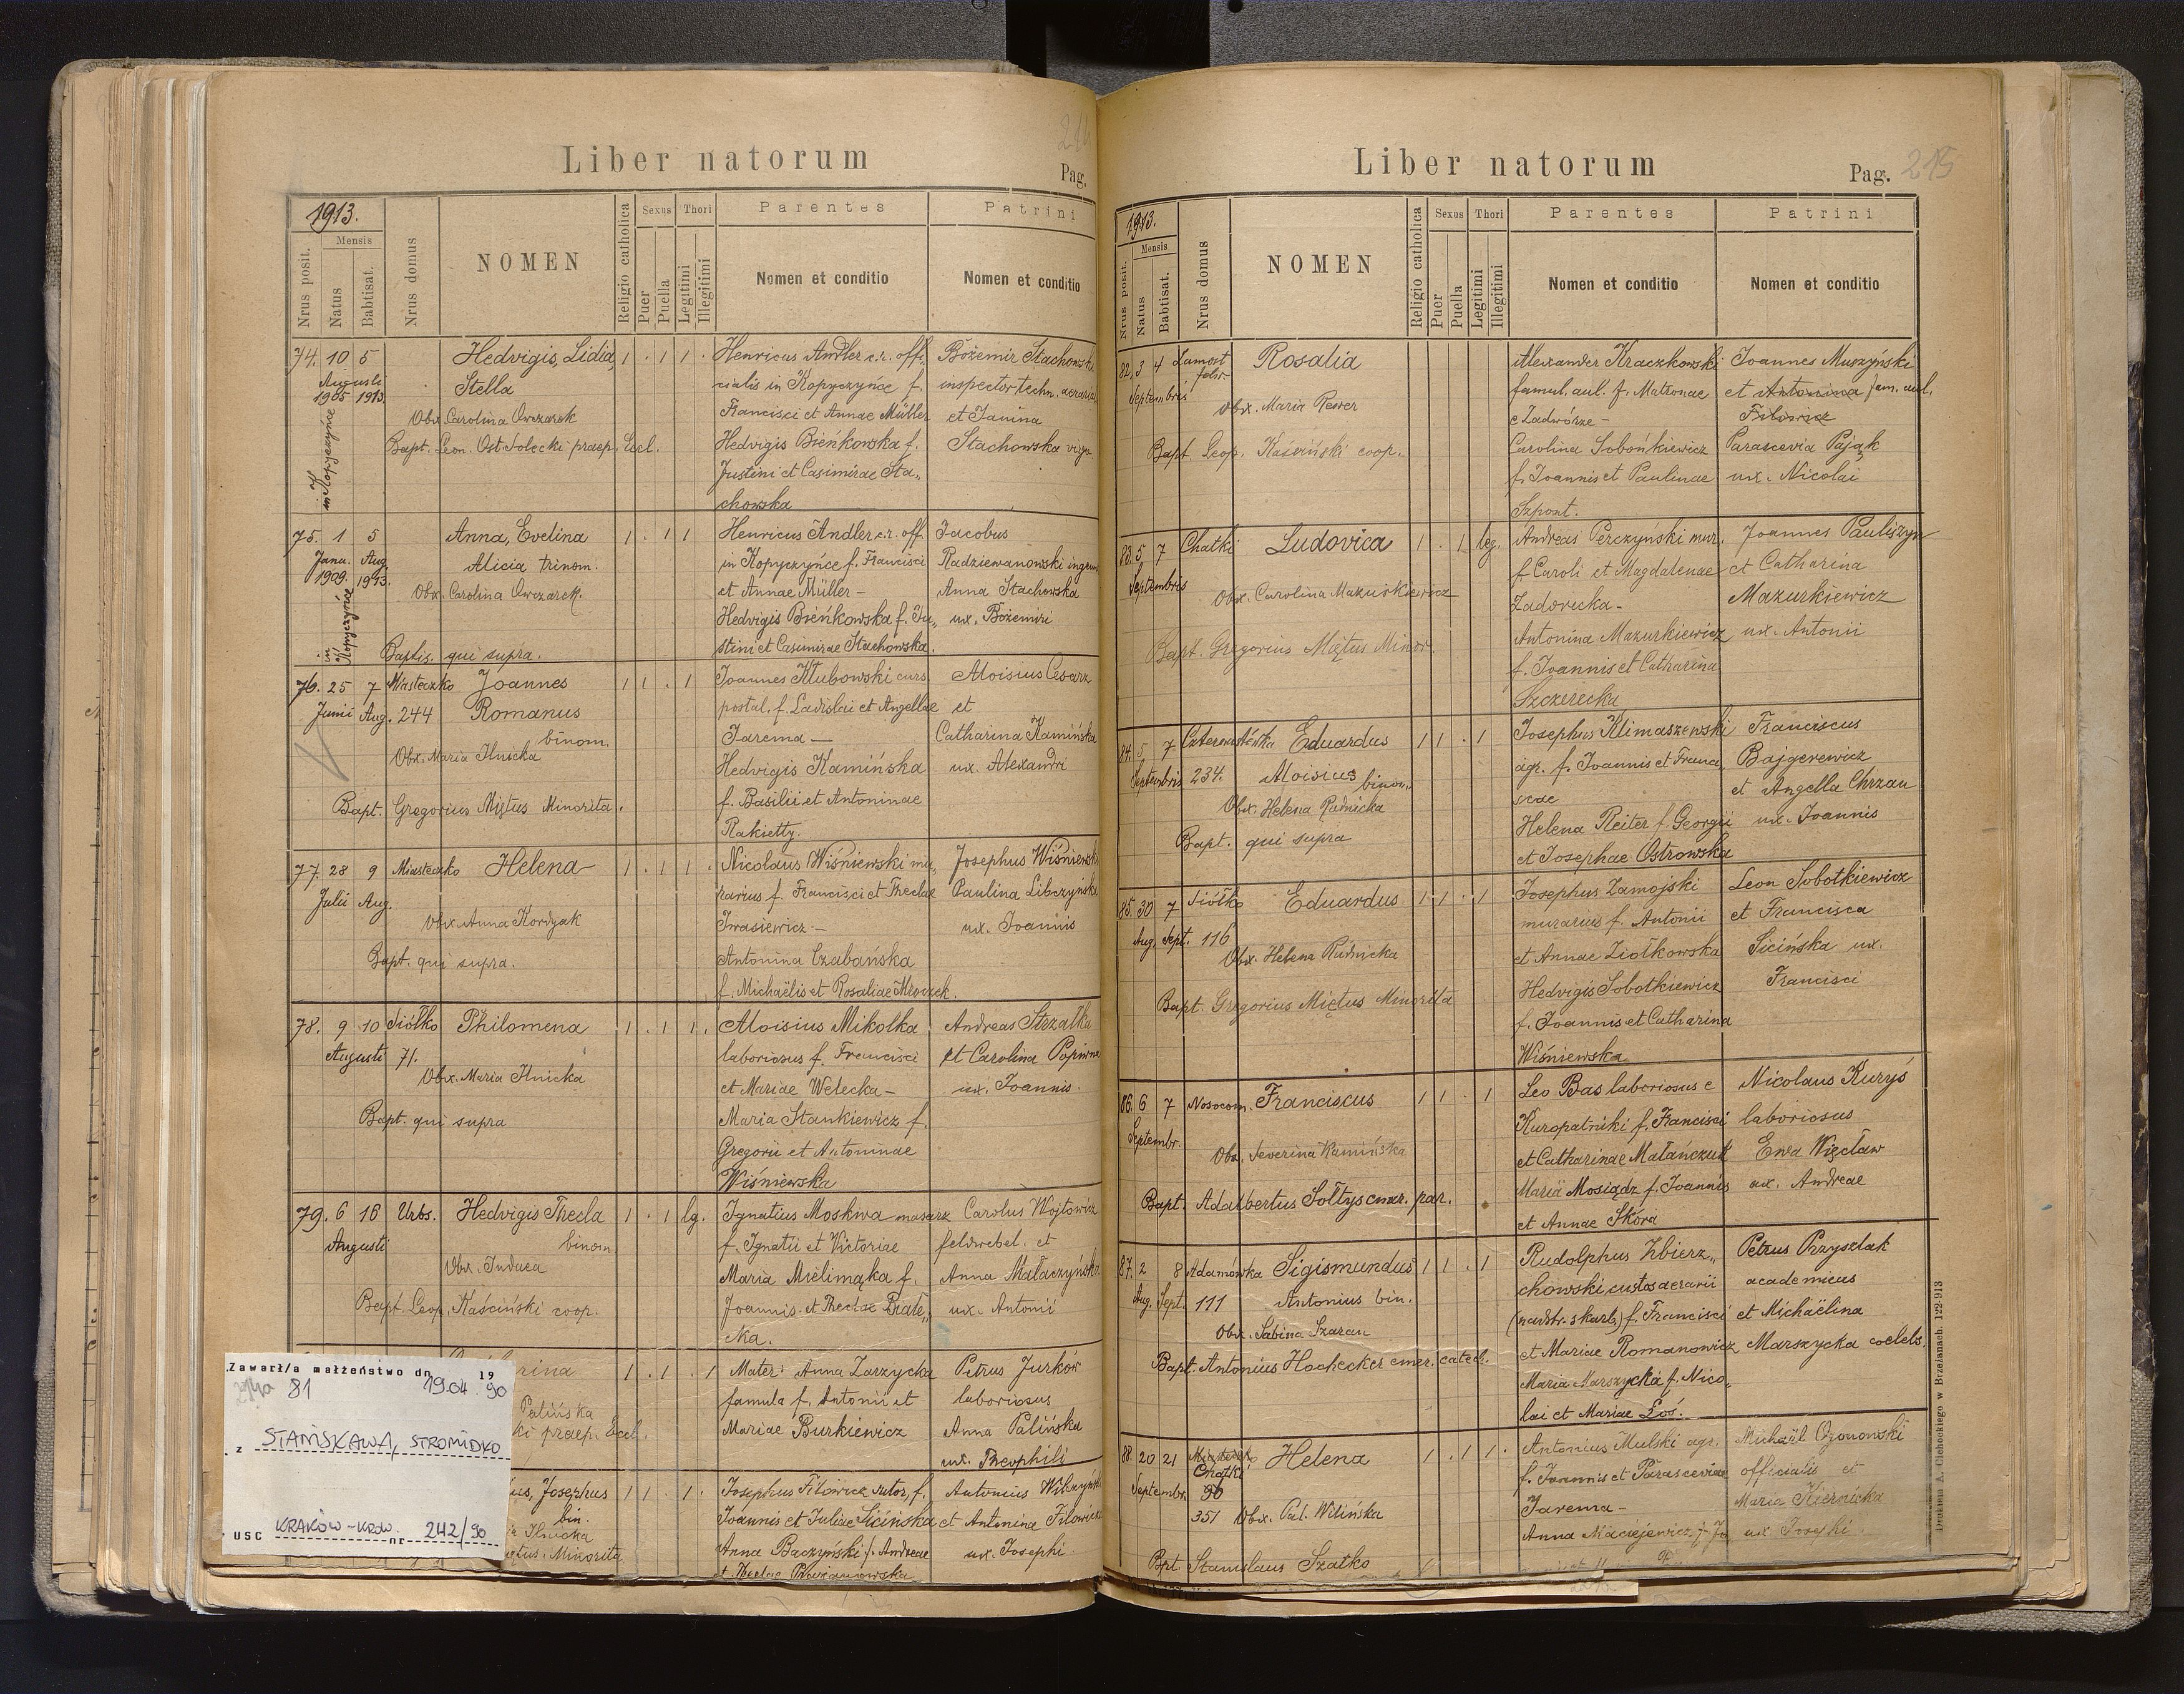 Liber natorum
Pag.
1913.
Nrus posit.
Mensis
Natus
Babtisat.
Nrus domus
NOMEN
Religio catholica
Sexus
Puer
Puella
Thori
Legitimi
Illegitimi
Parentes
Nomen et conditio
Patrini
Nomen et conditio
74. 10 5 Hedvigis, Lidia, 1 . 1 1 .
Augusti Stella
1905 1913.
in Kopyczyńce
Obx. Carolina Owczarek
Bapt. Leon. Ost. Solecki praep. Eccl.
Henricus Andler c.r. offi
cialis in Kopyczyńce f.
Francisci et Annae Müller
Hedvigis Bieńkowska f.
Justini et Casimirae Sta„
chowska
Bożemir Stachowski
inspector techn.
et Janina
Stachowska
75. 1 5 Anna, Evelina 1 . 1 1
Janu. Aug. Alicia trinom.
1909. 1913.
Obx. Carolina Owczarek.
Kopyczyńce
Baptis. qui supra.
Henricus Andler c.r. off.
in Kopyczyńce f. Francisci
et Annae Müller –
Hedvigis Bieńkowska f. Ju„
stini et Casimirae Stachowska.
Jacobus
Radziewanowski
Anna Stachowska
ux. Bożemiri
76. 25 7 Miasteczko Joannes 1 1 . 1
Junii Aug. 244 Romanus
binom.
Obx. Maria Ilnicka
Bapt. Gregorius Miętus Minorita.
Joannes Klubowski curs.
postal. f. Ladislai et Angellae
Jarema –
Hedvigis Kamińska
f. Basilii et Antoninae
Rakietty.
Aloisius Cesarz
et
Catharina Kamińska
ux. Alexandri
77. 28 9 Miasteczko Helena 1 . 1 1 .
Julii Aug.
Obx. Anna Kordyak
Bapt. qui supra.
Nicolaus Wiśniewski mu„
rarius f. Francisci et Theclae
Iwasiewicz –
Antonina Czabańska
f. Michaëlis et Rosaliae Mroczek.
Josephus Wiśniewski
Paulina Libczyńska
ux. Joannis
78. 9 10 Siółko Philomena 1 . 1 1 .
Augusti 71.
Obx. Maria Ilnicka
Bapt. qui supra
Aloisius Mikolka
laboriosus f. Francisci
et Mariae Welecka –
Maria Stankiewicz f.
Gregorii et Antoninae
Wiśniewska
Andreas Strzałka
et Carolina
ux. Joannis.
79. 6 16 Urbs. Hedvigis Thecla 1 . 1 lg.
Augusti binom
Obx. Judaea
Bapt. Leop. Kaściński coop.
Ignatius Moskwa masarz
f. Ignatii et Victoriae
Maria Mielimąka f.
Joannis et Theclae Białe„
cka.
Carolus Wojtowicz
feldwebel. et
Anna Małaczyńska
ux. Antonii
rina 1 . 1 . 1
Palińska
ki praep. Eccl.
Mater: Anna Zarzycka
famula f. Antonii et
Mariae Burkiewicz
Petrus Jurków
laboriosus
Anna Palińska
ux. Theophili
us, Josephus 1 1 . 1 .
bin.
Ilnicka
ętus. Minorita
Josephus Filowicz sutor, f.
Joannis et Juliae Sicińska
Anna Baczyński f. Andreae
et Theclae
Antonius Wilczyński
et Antonina Filowicz
ux. Josephi
Zawarł/a małżeństwo dn. 19
81 19.04. 90
z STANISŁAWA, STROMIDKO
USC KRAKÓW-KROW. nr 242/90
Liber natorum
Pag. 215
1913.
Nrus posit.
Mensis
Natus
Babtisat.
Nrus domus
NOMEN
Religio catholica
Sexus
Puer
Puella
Thori
Legitimi
Illegitimi
Parentes
Nomen et conditio
Patrini
Nomen et conditio
82. 3 4 Rosalia
Septembris
Obx. Maria Rewer
Bapt Leop. Kaściński coop.
Alexander Kraczkowski
famul. aul. f. Matronae
e Zadwórze –
Carolina Sobońkiewicz
f. Joannis et Paulinae
Szpont.
Joannes Muszyński
et Antonina fam. aul.
Filowicz
Parascevia Pająk
ux. Nicolai
83. 5 7 Chatki Ludovica 1 . 1 leg.
Septembris
Obx. Carolina Mazurkiewicz
Bapt. Gregorius Miętus Minor.
Andreas Perczyński mur.
f. Caroli et Magdalenae
Zadorecka –
Antonina Mazurkiewicz
f. Joannis et Catharina
Szczerecka
Joannes Pauliszyn
et Catharina
Mazurkiewicz
ux. Antonii
84. 5 7 Eduardus 1 1 . 1
Septembris 234. Aloisius binom.
Obx. Helena Rudnicka
Bapt. qui supra
Josephus Klimaszewski
agr. f. Joannis et Franci„
scae
Helena Reiter f. Georgii
et Josephae Ostrowska
Franciscus
Bajgerewicz
et Angella Chrzan
ux. Joannis
85. 30 7 Siółko Eduardus 1 1 . 1
Aug. Sept. 116
Obx. Helena Rudnicka
Bapt. Gregorius Miętus Minorita
Josephus Zamojski
murarius f. Antonii
et Annae Ziolkowska
Hedvigis Sobotkiewicz
f. Joannis et Catharina
Wiśniewska
Leon Sobotkiewicz
et Francisca
Sicińska ux.
Francisci
86. 6 7 Nosocom. Franciscus 1 1 . 1
Septembr.
Obx. Severina Kamińska
Bapt. Adalbertus Sołtys emer. par.
Leo Bas laboriosus e
Kuropatniki f. Francisci
et Catharinae Małańczuk
Maria Mosiądz f. Joannis
et Annae Skóra
Nicolaus Kuryś
laboriosus
Ewa Więcław
ux. Andreae
87. 2 8 Adamówka Sigismundus 1 1 . 1
Aug. Sept. 111 Antonius bin.
Obx. Sabina Szaran
Bapt. Antonius Hochecker emer. catech.
Rudolphus Zbierz„
chowski custos aerarii
(nadstr. skarb.) f. Francisci
et Mariae Romanowicz
Maria Marszycka f. Nico„
lai et Mariae Łoś.
Petrus Przysztak
academicus
et Michaëlina
Marszycka coelebs.
88. 20 21 Helena 1 . 1 1 .
Chatki
Septembr. 96
351 Obx. Pal. Wilińska
Bpt. Stanislaus Szatko
Antonius Mulski agr.
f. Joannis et Parasceviae
Jarema –
Anna Maciejewicz f. Jo
Michaël Ozonowski
officialis et
Maria Kiernicka
ux Josephi.
Drukiem A. Cichockiego w Brzeżanach. 122-913